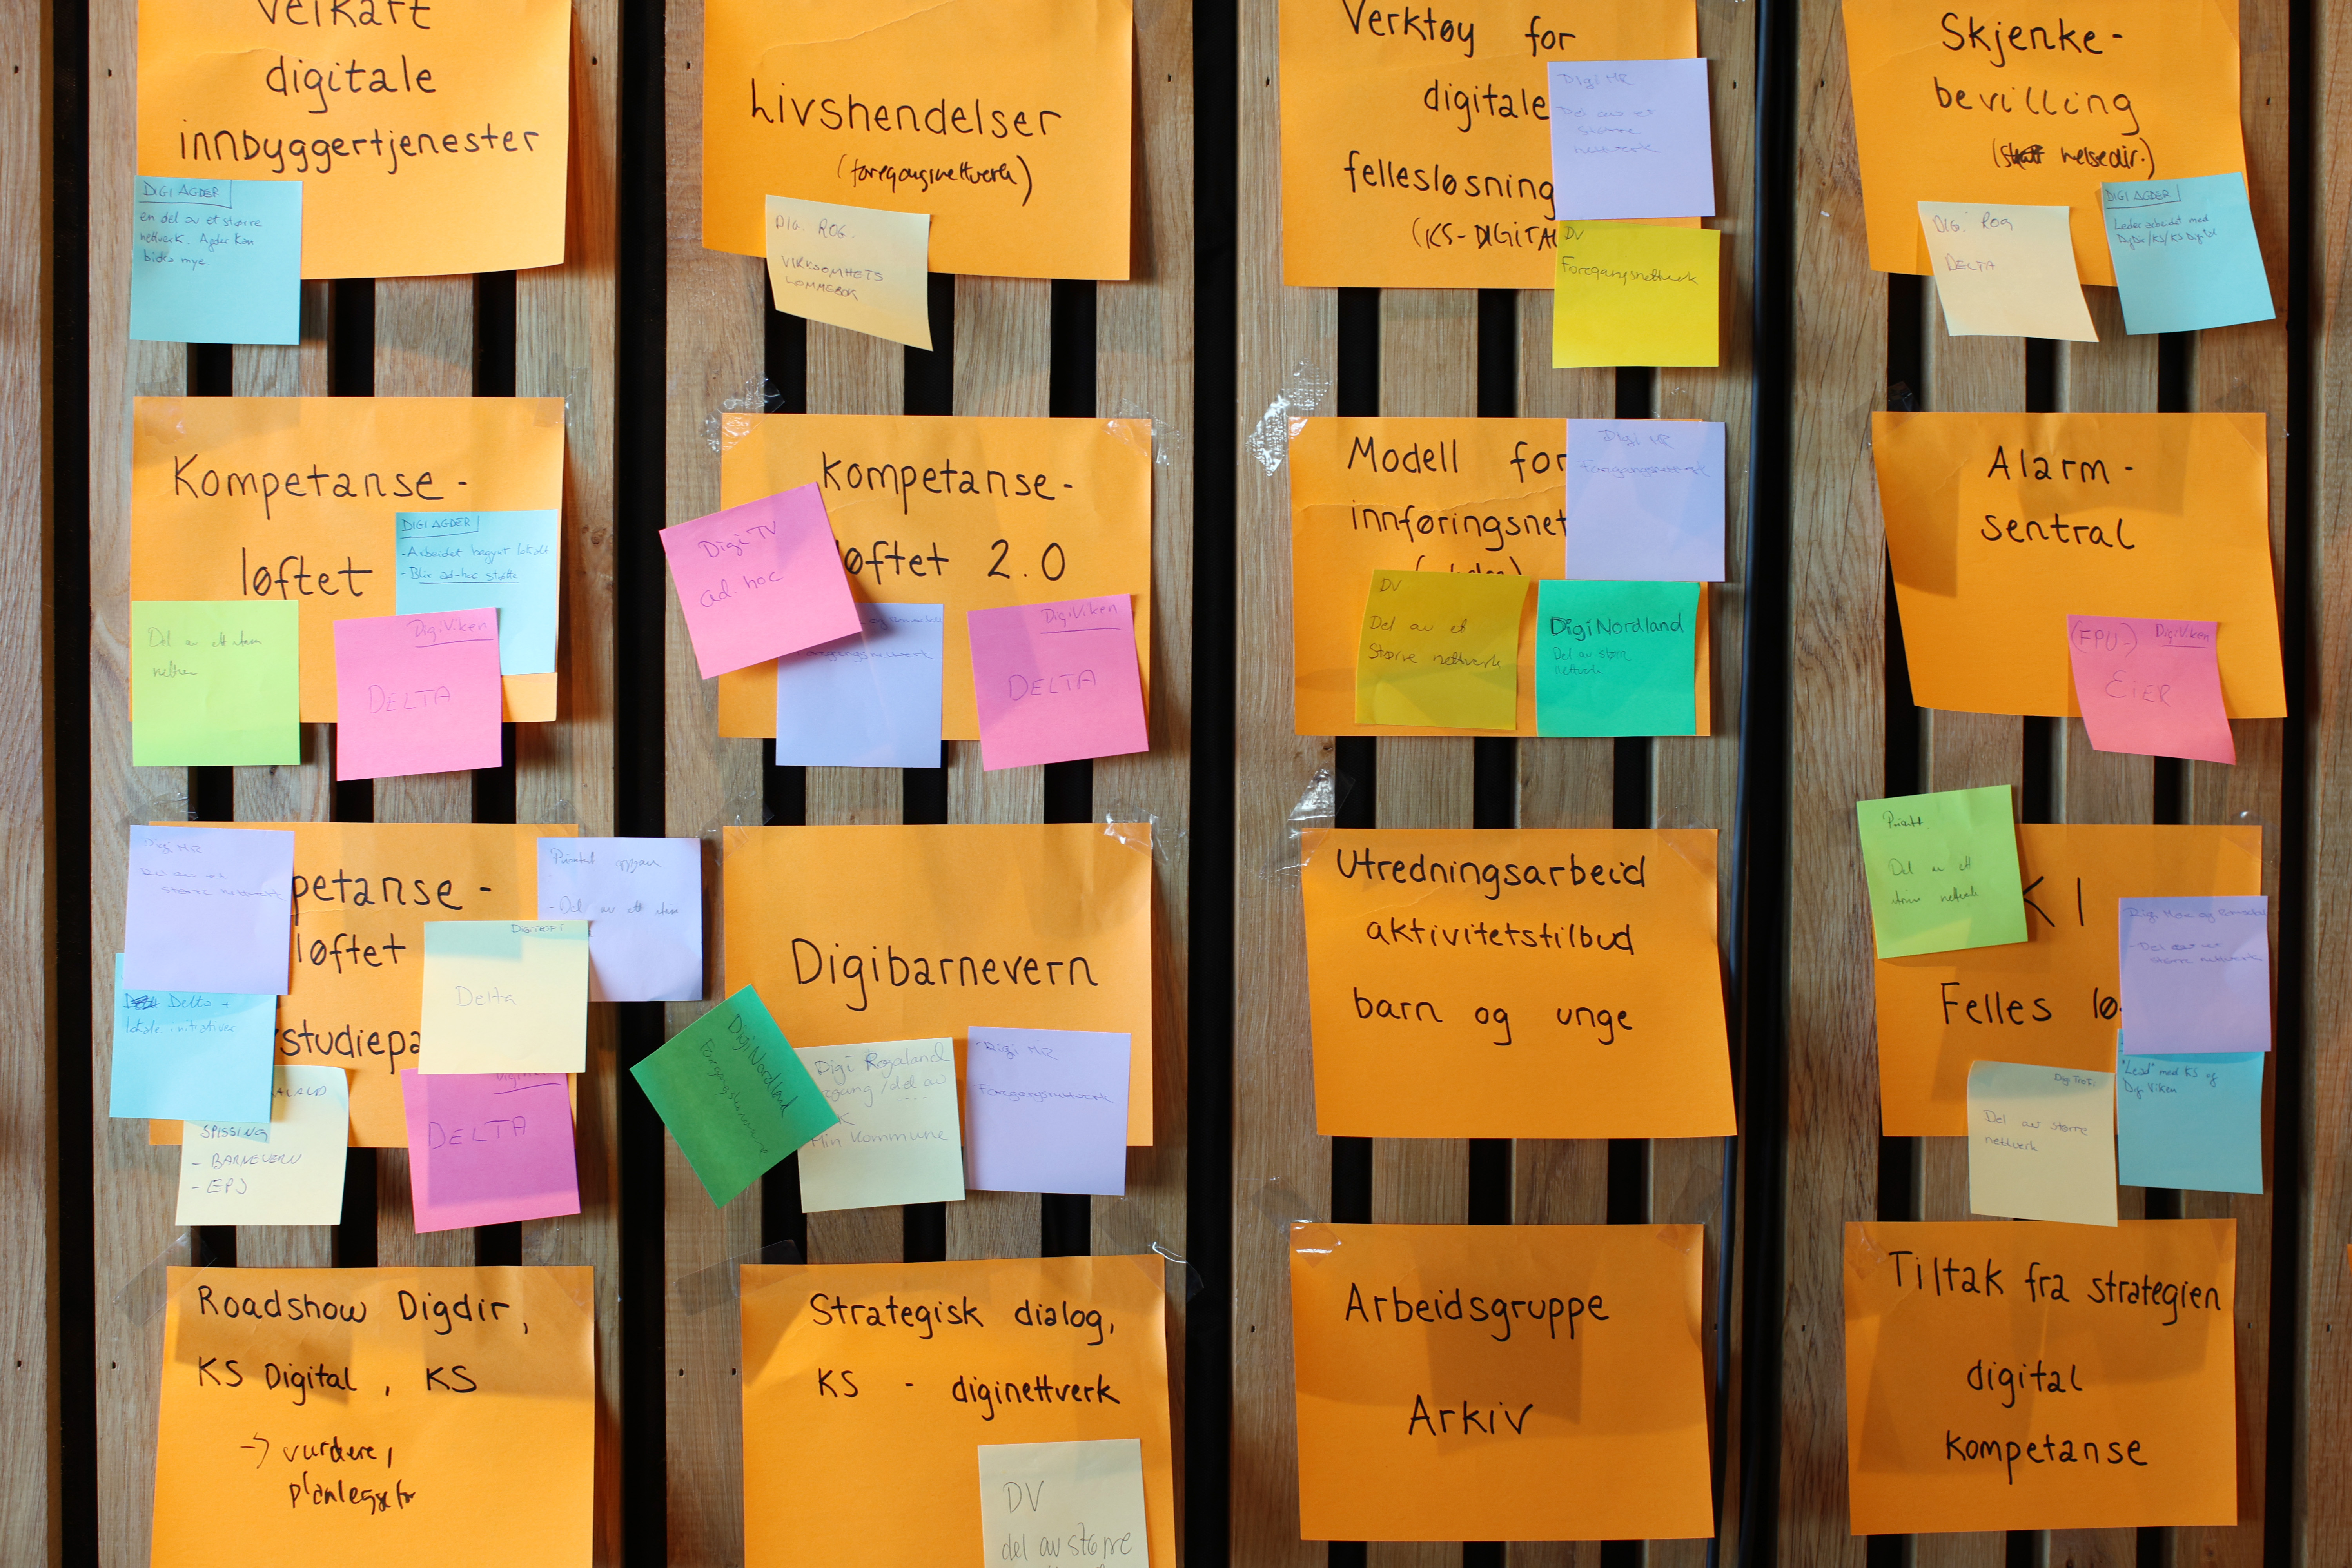 Veikart
digitale
innbyggertjenester
DIGI AGDER
en del av et større
nettverk. Agder kan
bidra mye.
Livshendelser
(foregangsnettverk)
DIG. ROG.
VIRKSOMHETS
LOMMEBOK
Verktøy for
digitale
fellesløsning
(KS-DIGITA
Digi MR
Del av et
større
nettverk
DV
Foregangsnettverk
Skjenke-
bevilling
helsedir.)
DIG. ROG
DELTA
DIGI AGDER
Leder arbeidet med
Kompetanse-
løftet
DIGI AGDER
- Arbeidet begynt lokalt
- Blir ad-hoc støtte
Del av ett
DigiViken
DELTA
Kompetanse-
øftet 2.0
DigiTV
ad. hoc
oregangsnettverk
DigiViken
DELTA
Modell for
innføringsnet
Digi MR
Foregangsnettverk
DV
Del av et
Større nettverk
DigiNordland
Del av større
nettverk
Alarm-
sentral
(FPU-) DigiViken
EIER
petanse-
løftet
studiepa
Digi MR
Del av et
større nettverk
- Del av ett
Delta +
lokale initiativer
DIGITROFI
Delta
ALAND
SPISSING
- BARNEVERN
- EPJ
DELTA
Digibarnevern
DigiNordland
Foregangskommune
Digi Rogaland
rgang / del av
....
K
Min Kommune
Digi MR
Foregangsnettverk
Utredningsarbeid
aktivitetstilbud
barn og unge
KI
Felles lø
Del av ett
Digi Møre og Romsdal
- Del av et
større nettverk
"Lead" med KS og
Digi Viken
Digi Trofi
Del av større
nettverk
Roadshow Digdir,
KS Digital, KS
→ vurdere,
planlegge for
Strategisk dialog,
KS - diginettverk
DV
del av større
Arbeidsgruppe
Arkiv
Tiltak fra strategien
digital
kompetanse